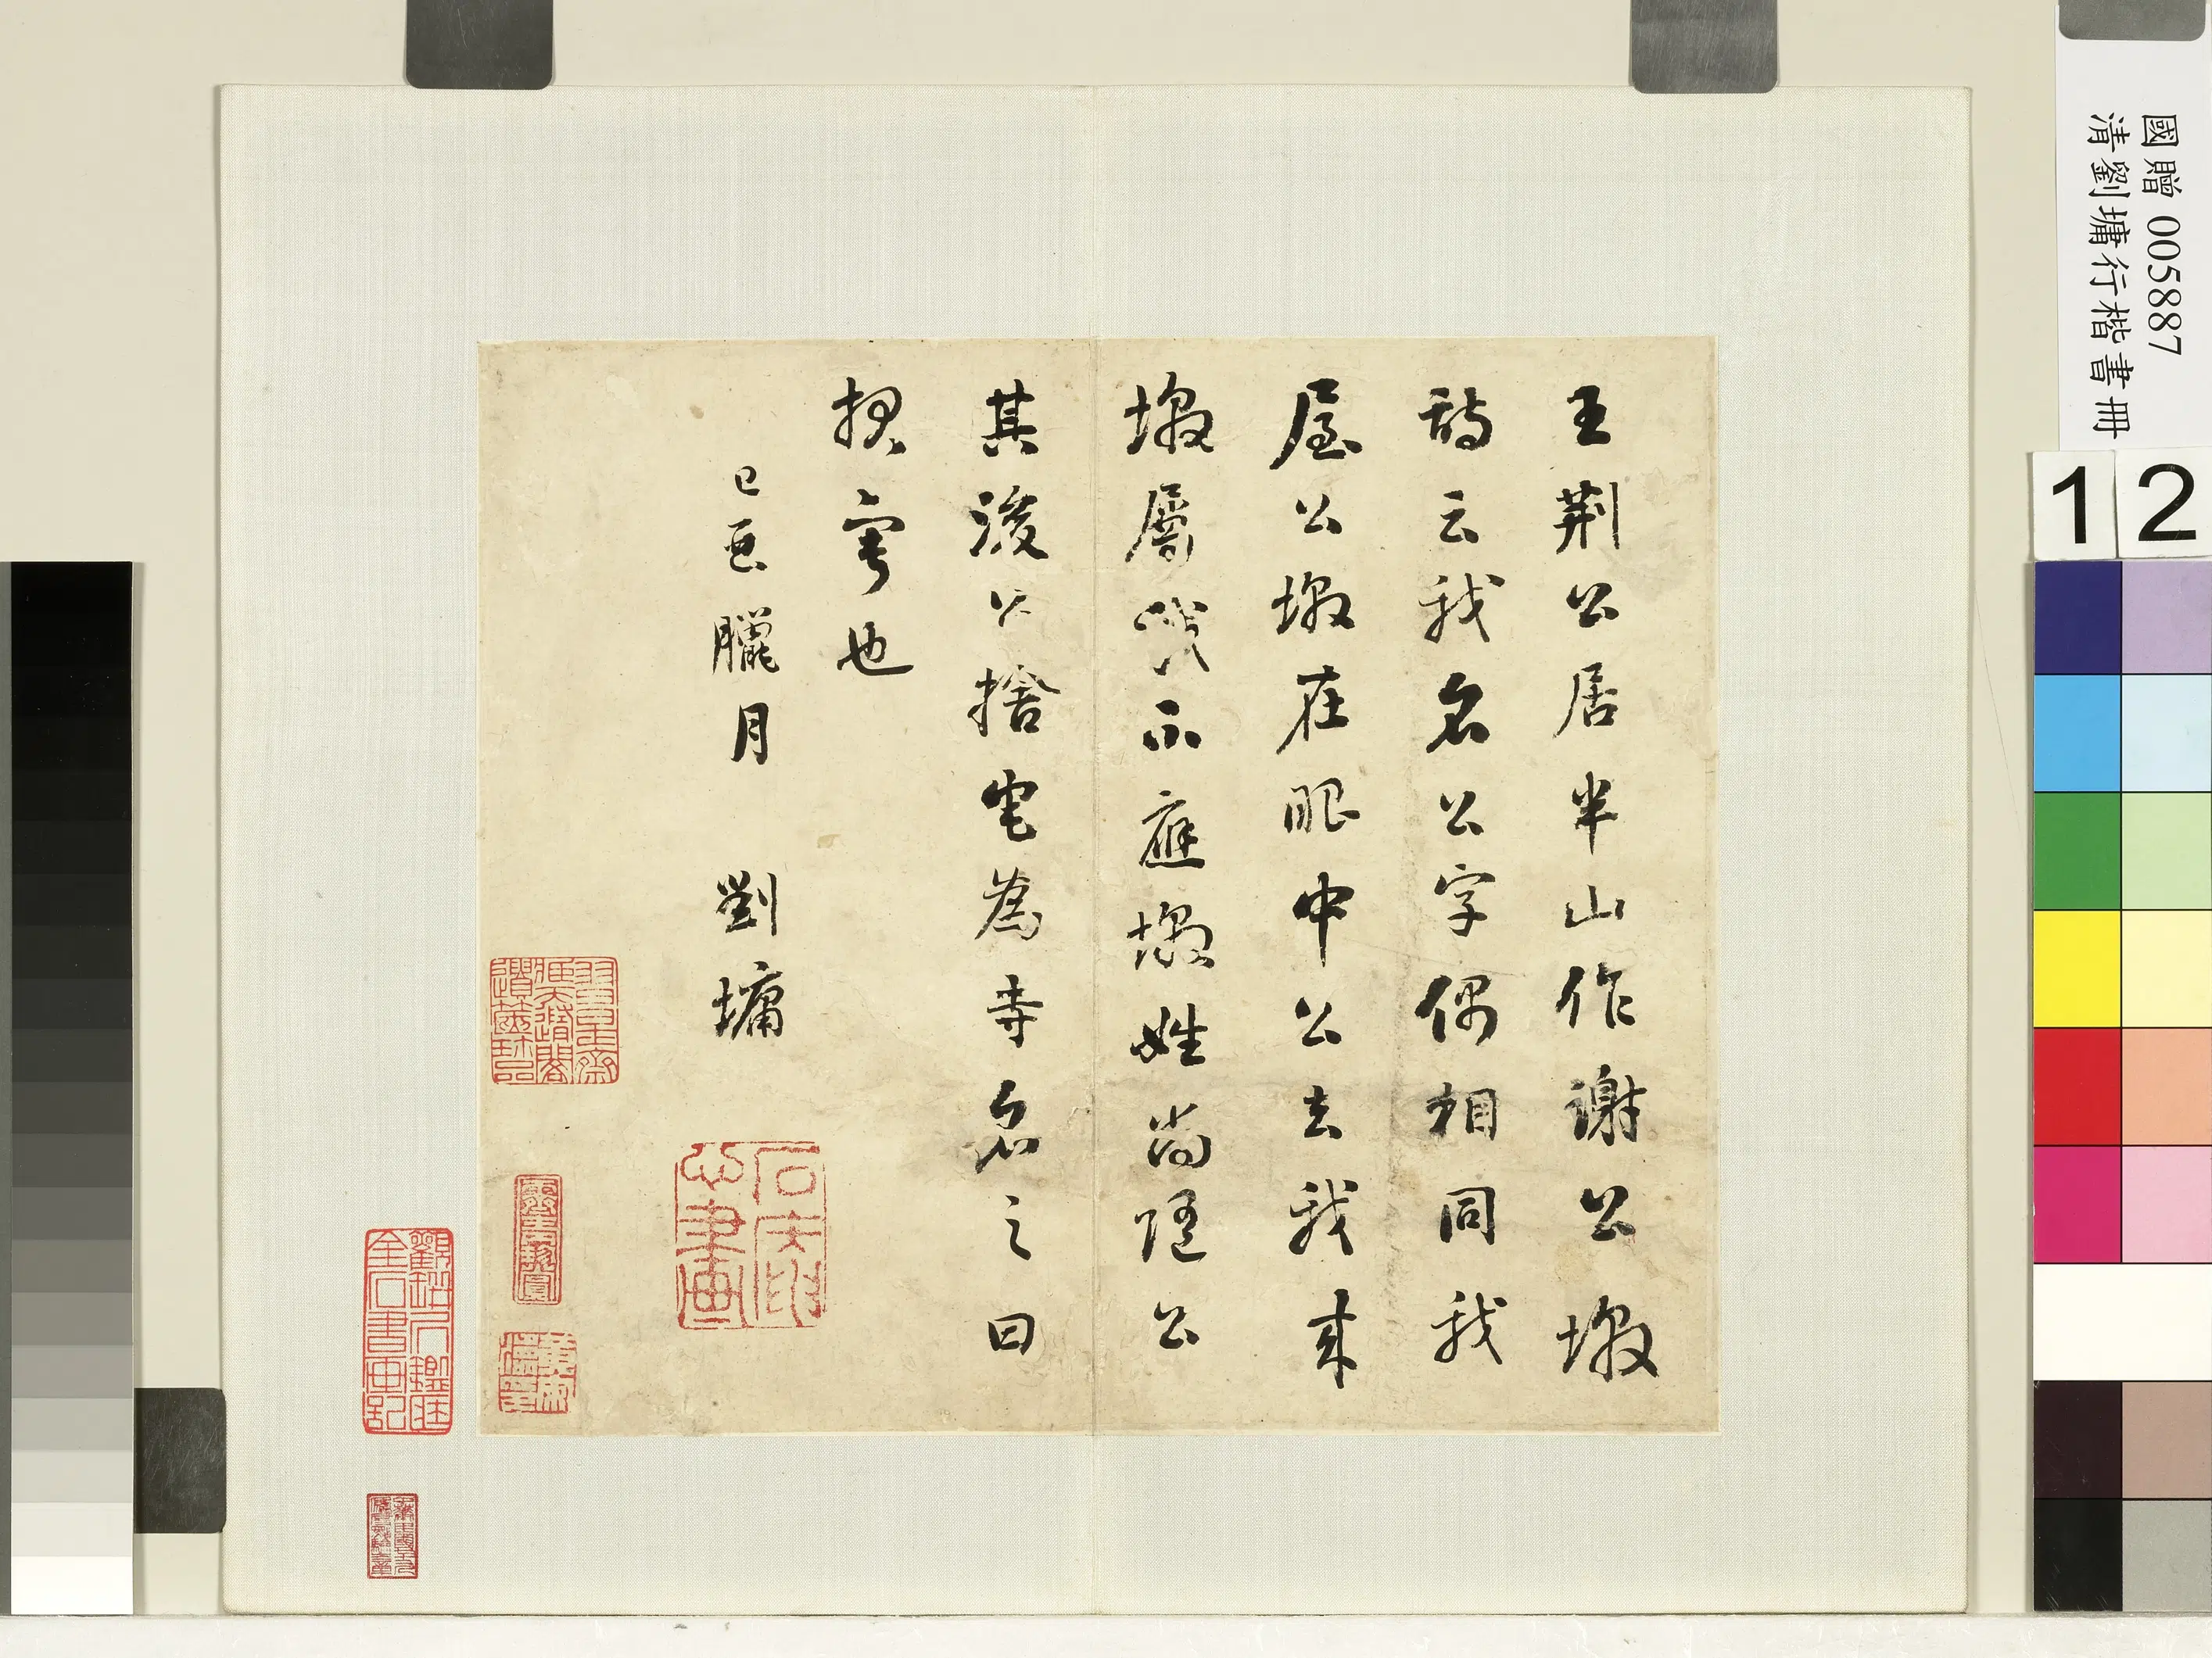 國贈 005887
清劉墉行楷書冊
1 2
王荊公居半山作謝公墩
詩云我名公字偶相同我
屋公墩在眼中公去我來
墩屬我不應墩姓尚隨公
其後公捨宅為寺名之曰
報寧也
己酉臘月 劉墉